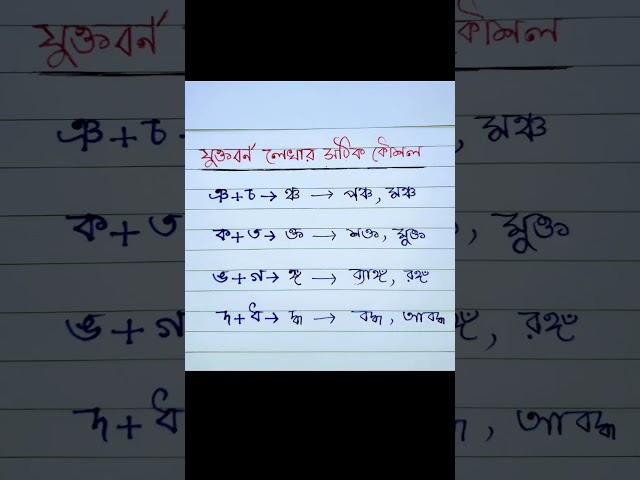 যুক্তবর্ন লেখার সঠিক কৌশল
ঞ+চ→ ঞ্চ → পঞ্চ, মঞ্চ
ক+ত→ ক্ত → শক্ত, যুক্ত
ঙ+গ→ ঙ্গ → ব্যাঙ্গ, রঙ্গ
দ+ধ→ দ্ধ → বদ্ধ, আবদ্ধ